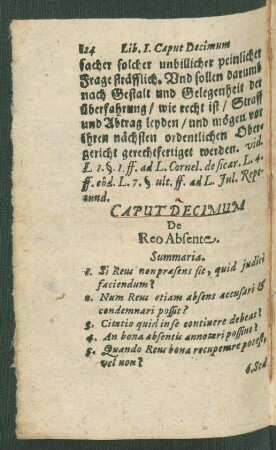 124 Lib. I. Caput Decimum
sacher solcher unbillicher peinlicher
Frage sträfflich. Vnd sollen darumb
nach Gestalt und Gelegenheit der
überfahrung / wie recht ist / Straff
und Abtrag leyden / und mögen vor
ihren nächsten ordentlichen Ober-
gericht gerechtfertiget werden. vid.
L. 1. §. 1. ff. ad L. Cornel. de sicar. L. 4.
ff. eod. L. 7. §. ult. ff. ad L. Jul. Rept-
tund.
CAPUT DECIMUM
De
Reo Absente.
Summaria.
1. Si Reus non præsens sit, quid judici
faciendum?
2. Num Reus etiam absens accusari &
condemnari possit?
3. Citatio quid in se continere debeat?
4. An bona absentis annotari possint?
5. Quando Reus bona recuperare potest,
vel non?
6. Sed